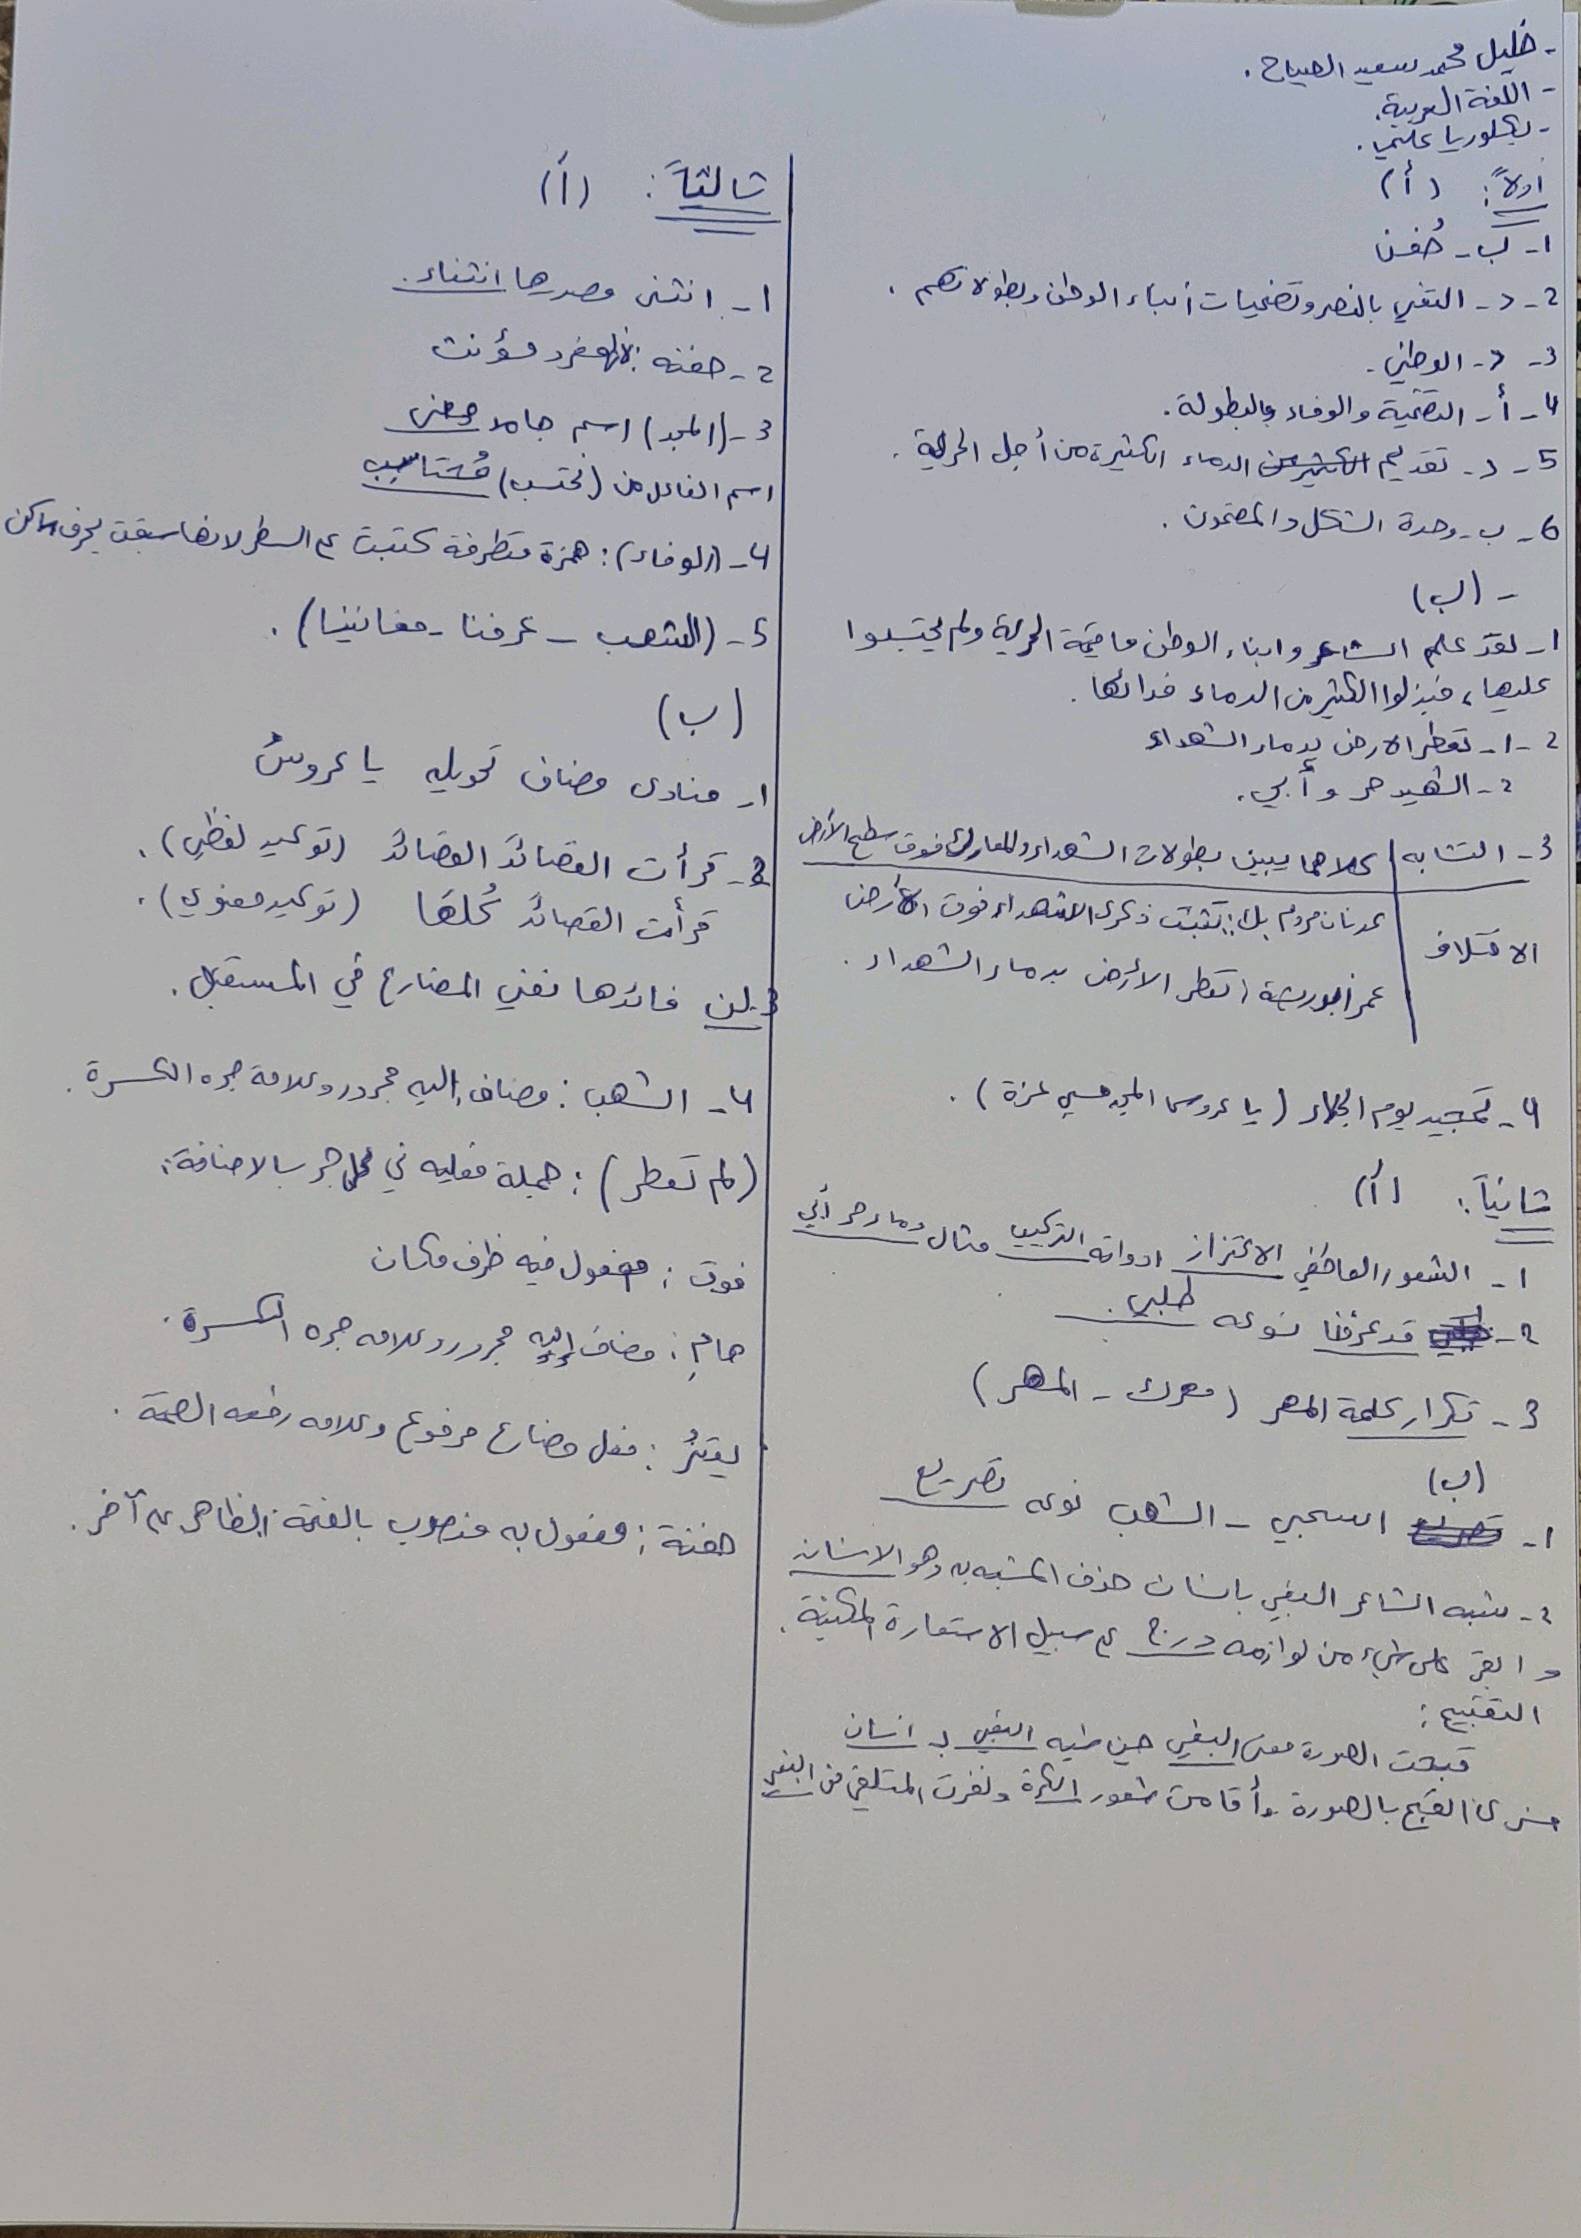 - خليل محمد سعيد الصياح.
- اللغة العربية.
- بكلوريا علمي.
أولاً: (أ)
1- ب - حُفن
2- د- التغني بالنصر وتضحيات أبناء الوطن وبطولاتهم.
3- د- الوطني.
4- أ- التضحية والوفاء والبطولة.
5- د- تقديم الدماء الكثيرة من أجل الحرية.
6- ب- وحدة الشكل والمضمون.
- (ب)
1- لقد علم الشاعر وابناء الوطن ما قيمة الحرية ولم يحتسبوا
عليها، فبذلوا الكثير من الدماء فدائها.
2- 1- تعطر الارض بدماء الشهداء
2- الشهيد حر وأبي.
3- التشابه | كلاهما يبين بطولات الشهداء والمعارك فوق سطح الأرض
عدنان مردم بك: تثبت ذكرى الشهداء فوق الأرض
الاختلاف
عمر أبو ريشة: تعطر الأرض بدماء الشهداء.
4- تمجيد يوم الجلاء (يا عروس المجد ميسي عزة).
ثانياً: (أ)
1- الشعور العاطفي الاعتزاز ادواته التركيب مثال دماء حر أبي
2- قد عرفنا نوعه طلبي.
3- تكرار كلمة المهر (مهرك - المهر)
(ب)
1- اسحبي - الشهب نوعه تصريع
2- شبه الشاعر البغي بانسان حذف المشبه به وهو الانسان
و ابقى على شيء من لوازمه درج ع سبيل الاستعارة المكنية.
التقبيح:
قبحت الصورة معنى البغي حين شبه البغي بـ انسان
فنرى القبح بالصورة وأقامت شعور الكره ونفرت المتلقي من البغي
ثالثاً: (أ)
1- انتشى مصدرها انتشاء.
2- حفنه: لأنها مفرد مؤنث
3- (المجد) اسم جامد معنى
اسم الفاعل من (نحتسب) مُحتاسِب
4- (الوفاء): همزة متطرفة كتبت ع السطر لانها سبقت بحرف ساكن
5- (الشهب - عرفنا - مغانينا).
(ب)
1- منادى مضاف تحويله يا عروسُ
2- قرأت القصائدَ القصائدَ (توكيد لفظي).
قرأت القصائدَ كُلَّها (توكيد معنوي).
3- لن فائدها نفي المضارع في المستقبل.
4- الشهب: مضاف إليه مجرور وعلامة جره الكسرة.
(لم تعطر): جملة فعليه في محل جر بالاضافة:
فوق: مفعول فيه ظرف مكان
هامِ: مضاف إليه مجرور وعلامه جره الكسرة.
يعتزُّ: فعل مضارع مرفوع وعلامه رفعه الضمة.
حفنة: مفعول به منصوب بالفتحة الظاهر ع آخر.